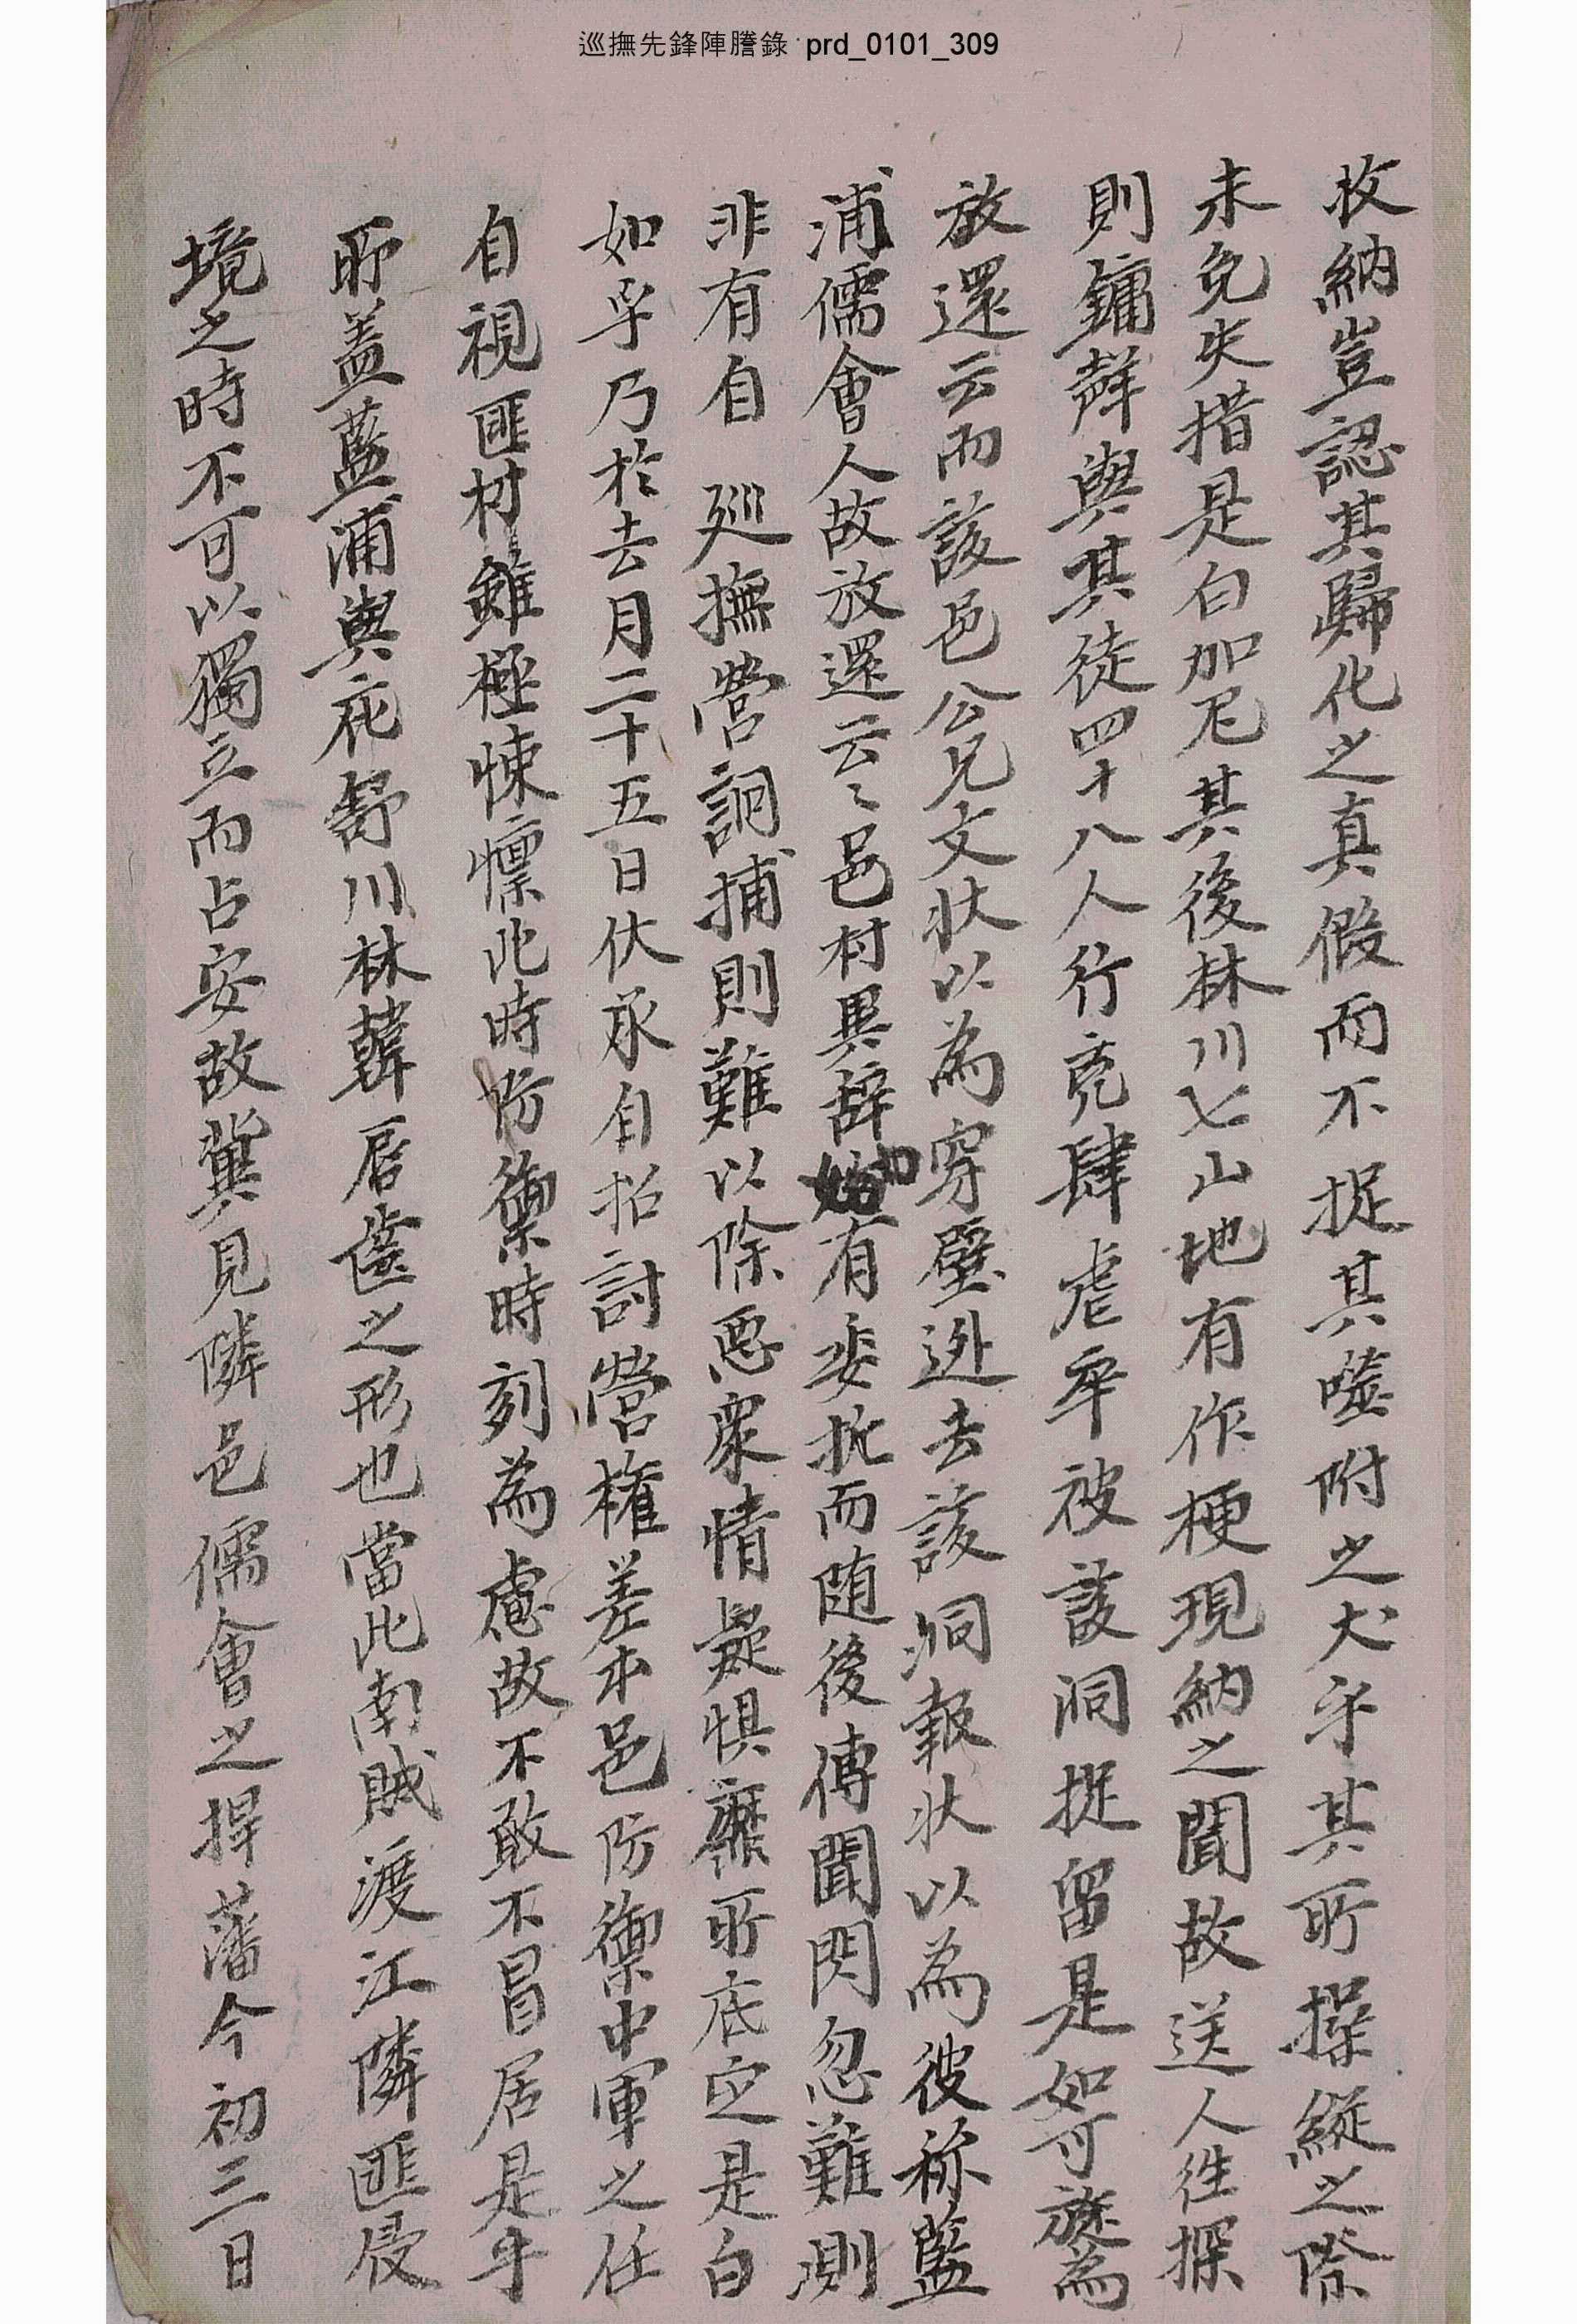 巡撫先鋒陣謄錄 prd_0101_309
收納豈認其歸化之眞假而不捉其噓附之犬乎其所操縱之際
未免失措是白加尼其後林川七山地有作梗現納之聞故送人往探
則鏞聲與其徒四十八人行䓻肆虐卒被該洞捉留是如可旋爲
放還云而該邑公兄文狀以爲穿壁逃去該洞報狀以爲彼称藍
浦儒會人故放還云〻邑村異辭如有委折而随後傳聞閃忽難測
非有自 廵撫營詗捕則難以除惡衆情疑惧靡所底定是白
如乎乃於去月二十五日伏承自招討營權差本邑防禦中軍之任
自視匪材雖極悚懍此時防禦時刻爲慮故不敢不冒居是乎
所盖藍浦與庇舒川林韓唇齒之形也當此南賊渡江隣匪侵
境之時不可以獨立而占安故冀見隣邑儒會之捍藩今初三日